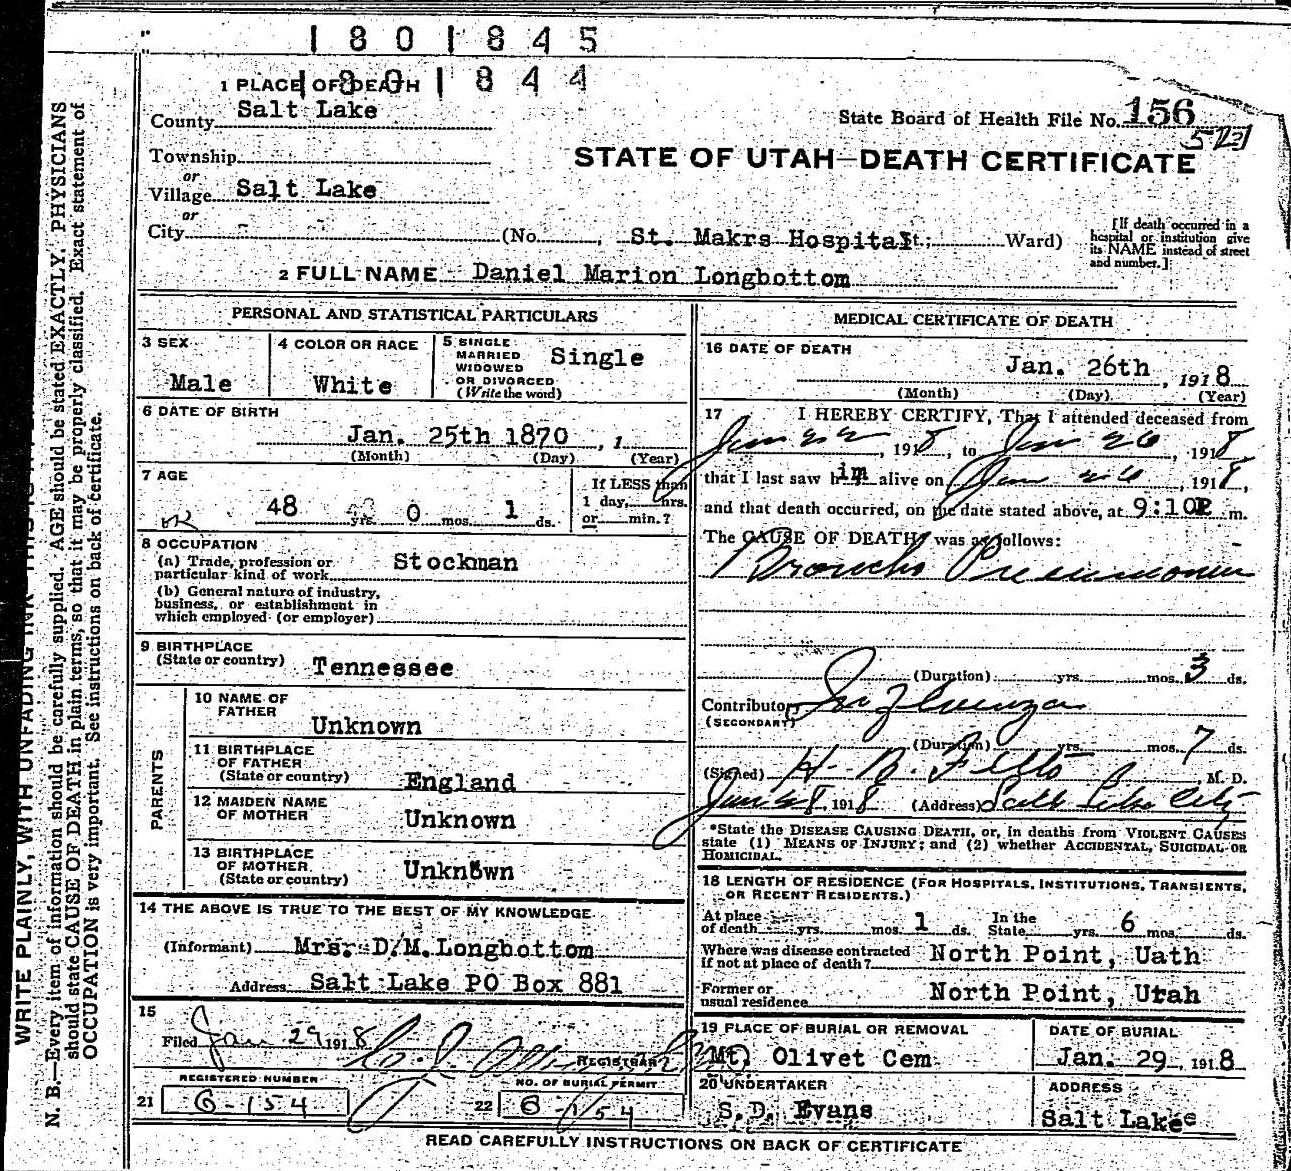 1801845
1801844
1 PLACE OF DEATH
County Salt Lake
State Board of Health File No. 156
Township
or
Village Salt Lake
or
City
STATE OF UTAH—DEATH CERTIFICATE
(No. , St. Makrs Hospital St.; Ward)
[If death occurred in a
hospital or institution give
its NAME instead of street
and number.]
2 FULL NAME Daniel Marion Longbottom
PERSONAL AND STATISTICAL PARTICULARS
3 SEX
Male
4 COLOR OR RACE
White
5 SINGLE
MARRIED
WIDOWED
OR DIVORCED
(Write the word)
Single
6 DATE OF BIRTH
Jan. 25th 1870 , 1
(Month) (Day) (Year)
7 AGE
48 yrs. 0 mos. 1 ds.
If LESS than
1 day, hrs.
or min.?
8 OCCUPATION
(a) Trade, profession or
particular kind of work Stockman
(b) General nature of industry,
business, or establishment in
which employed (or employer)
9 BIRTHPLACE
(State or country) Tennessee
PARENTS
10 NAME OF
FATHER
Unknown
11 BIRTHPLACE
OF FATHER
(State or country) England
12 MAIDEN NAME
OF MOTHER Unknown
13 BIRTHPLACE
OF MOTHER
(State or country) Unknown
14 THE ABOVE IS TRUE TO THE BEST OF MY KNOWLEDGE
(Informant) Mrs. D.M. Longbottom
Address Salt Lake PO Box 881
15
Filed Jan 29 1918
REGISTRAR
REGISTERED NUMBER
21 6-154
NO. OF BURIAL PERMIT
22 6-154
MEDICAL CERTIFICATE OF DEATH
16 DATE OF DEATH
Jan. 26th , 1918
(Month) (Day) (Year)
17 I HEREBY CERTIFY, That I attended deceased from
Jan 22 , 1918, to Jan 26 , 1918
that I last saw him alive on Jan 26 , 1918,
and that death occurred, on the date stated above, at 9:10P m.
The CAUSE OF DEATH* was as follows:
Broncho Pneumonia
(Duration) yrs. mos. 3 ds.
Contributory Influenza
(SECONDARY)
(Duration) yrs. mos. 7 ds.
(Signed) H. B. Felts , M. D.
Jan 28, 1918 (Address) Salt Lake City
*State the DISEASE CAUSING DEATH, or, in deaths from VIOLENT CAUSES
state (1) MEANS OF INJURY; and (2) whether ACCIDENTAL, SUICIDAL OR
HOMICIDAL.
18 LENGTH OF RESIDENCE (FOR HOSPITALS, INSTITUTIONS, TRANSIENTS,
OR RECENT RESIDENTS.)
At place
of death yrs. mos. 1 ds. In the
State yrs. 6 mos. ds.
Where was disease contracted
if not at place of death? North Point, Uath
Former or
usual residence North Point, Utah
19 PLACE OF BURIAL OR REMOVAL
Mt. Olivet Cem.
DATE OF BURIAL
Jan. 29, 1918
20 UNDERTAKER
S.D. Evans
ADDRESS
Salt Lake
READ CAREFULLY INSTRUCTIONS ON BACK OF CERTIFICATE
N. B.—Every item of information should be carefully supplied. AGE should be stated EXACTLY. PHYSICIANS
should state CAUSE OF DEATH in plain terms, so that it may be properly classified. Exact statement of
OCCUPATION is very important. See instructions on back of certificate.
WRITE PLAINLY, WITH UNFADING INK